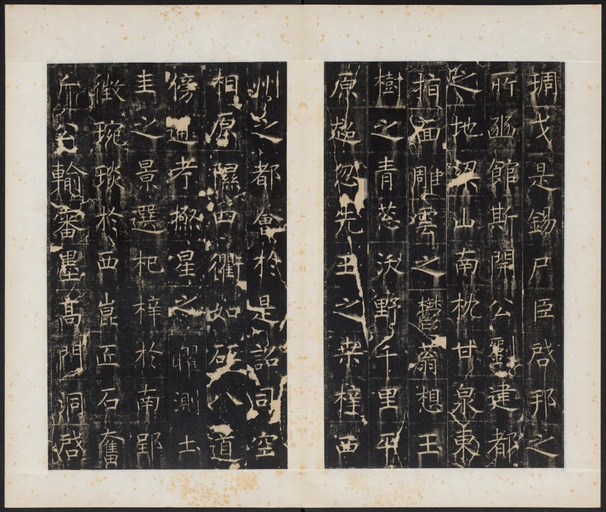 琱戈是錫尸臣啓邦之
所豳館斯開公劉建都
之地梁山南枕甘泉東
指面雕雲之鬱蓊想玉
樹之青葱沃野千里平
原超忽先王之桑梓西
州之都會於是詔司空
相原隰四衢如砥八道
傍通考樞星之曜測土
圭之景選杞梓於南郢
徵琬琰於西崑匠石奮
斤公輸審墨高門洞啓